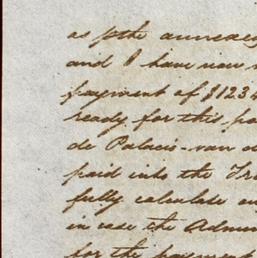 as pthe annexed
and I have now
payment of $1234
ready for this pa
de Palacio - van
paid into the Tre
fully calculate
in case the Admin
for the payment